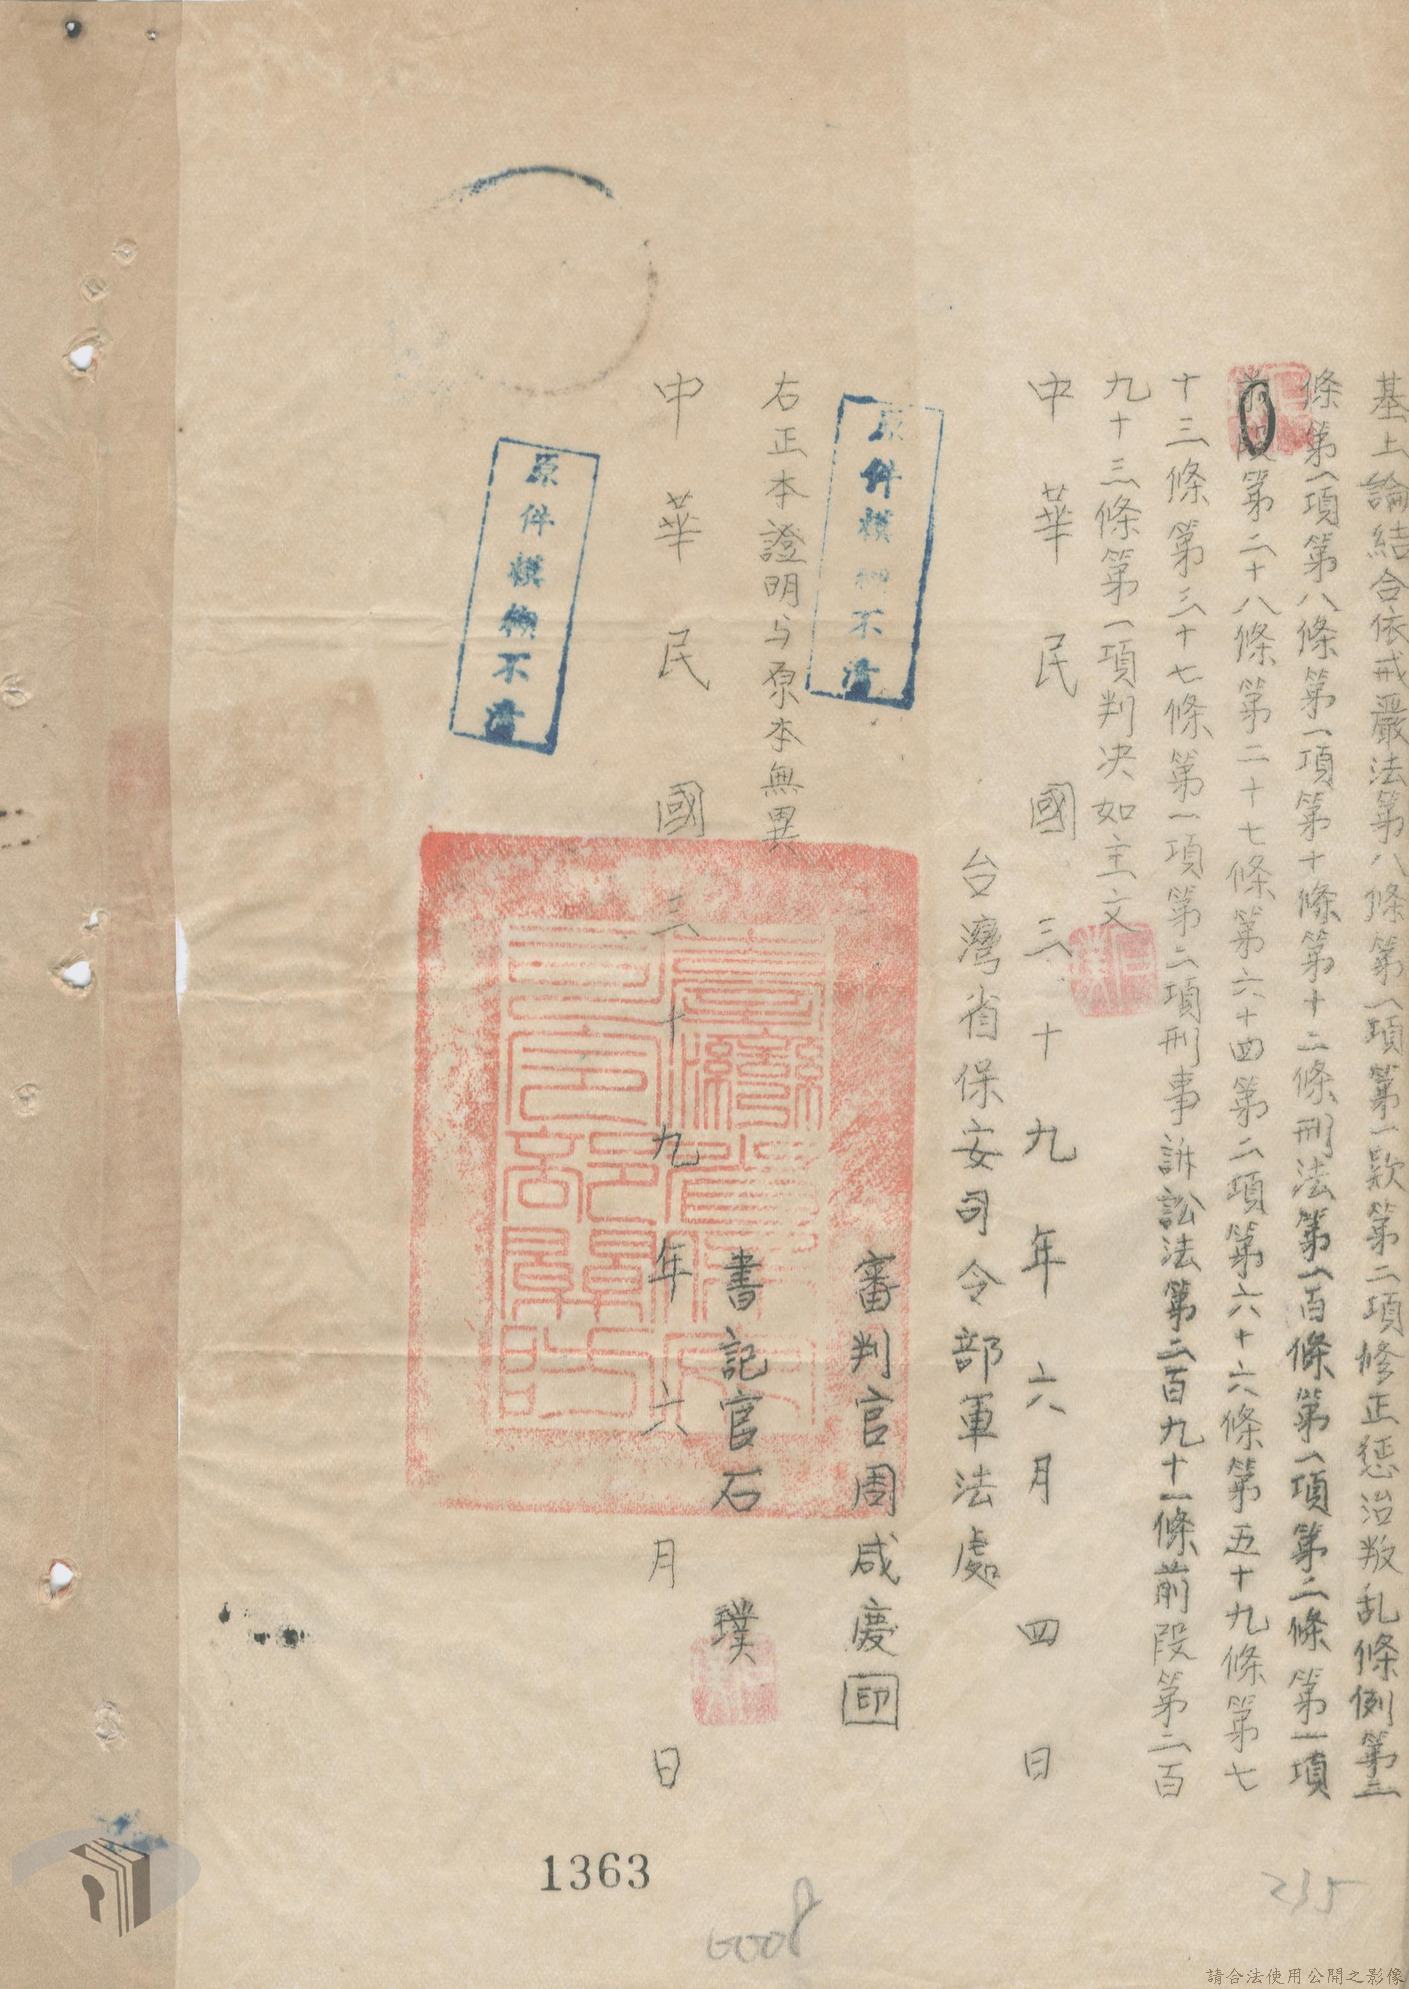 基上論結合依戒嚴法第八條第一項第一款第二項修正懲治叛乱條例第三
條第一項第八條第一項第十條第十二條刑法第一百條第一項第二條第一項
前段第二十八條第二十七條第六十四第二項第六十六條第五十九條第七
十三條第三十七條第一項第二項刑事訴訟法第二百九十一條前段第二百
九十三條第一項判決如主文
中華民國三十九年六月四日
台灣省保安司令部軍法處
審判官周咸慶印
原件模糊不清
右正本證明与原本無異
書記官石璞
中華民國三十九年六月 日
原件模糊不清
1363
235
請合法使用公開之影像